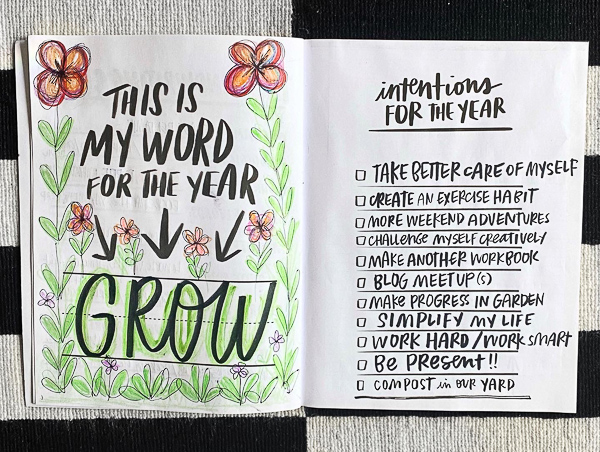 THIS IS
MY WORD
FOR THE YEAR
GROW
intentions
FOR THE YEAR
TAKE BETTER CARE OF MYSELF
CREATE AN EXERCISE HABIT
MORE WEEKEND ADVENTURES
CHALLENGE MYSELF CREATIVELY
MAKE ANOTHER WORKBOOK
BLOG MEETUP(S)
MAKE PROGRESS IN GARDEN
SIMPLIFY MY LIFE
WORK HARD/WORK SMART
Be PResenT!!
COMPOST in OUR YARD